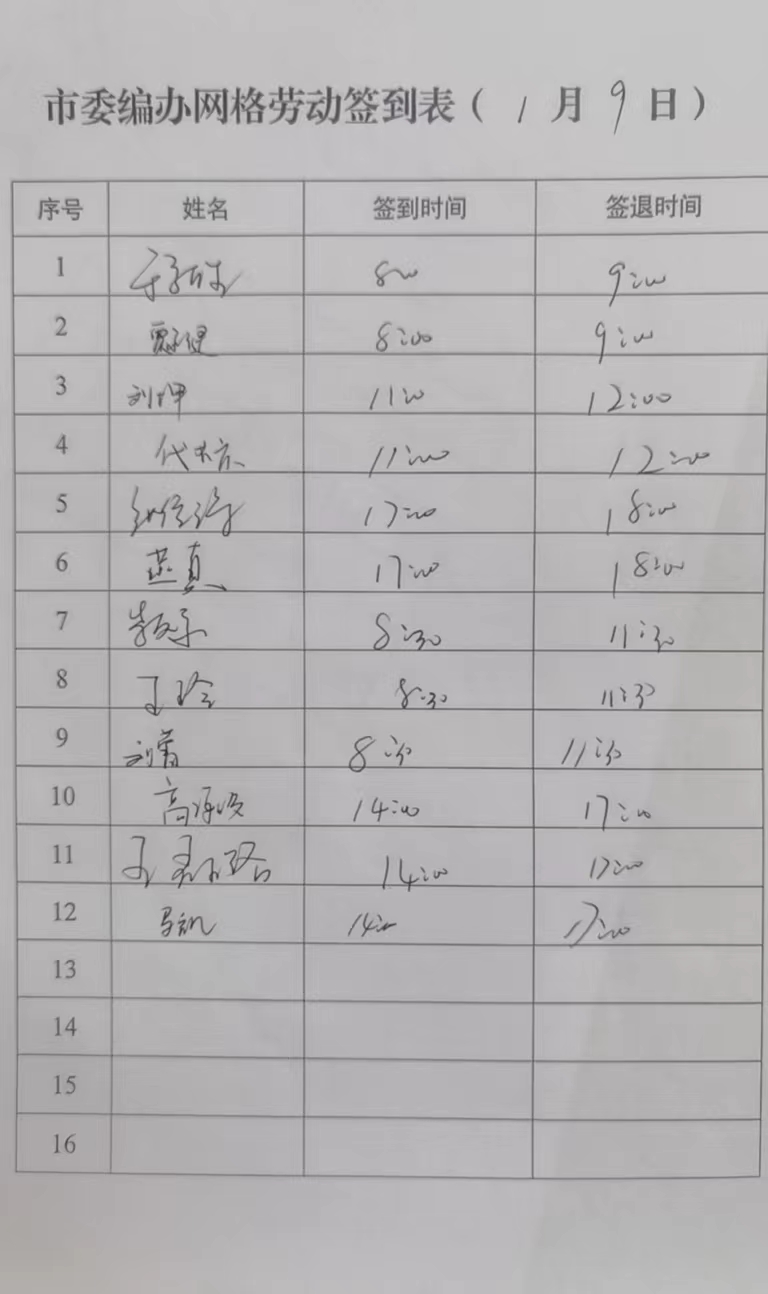 市委编办网格劳动签到表（1月9日）
序号 姓名 签到时间 签退时间
1 8:00 9:00
2 8:00 9:00
3 刘坤 11:00 12:00
4 11:00 12:00
5 17:00 18:00
6 燕真 17:00 18:00
7 8:30 11:30
8 王玲 8:30 11:30
9 8:30 11:30
10 14:00 17:00
11 14:00 17:00
12 马凯 14:00 17:00
13
14
15
16